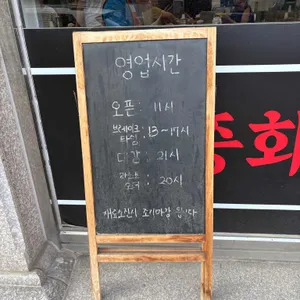 영업시간
오픈 : 11시
브레이크
타임 : 15~17시
마감 : 21시
라스트
오더 : 20시
재료소진시 조기마감 됩니다
중화